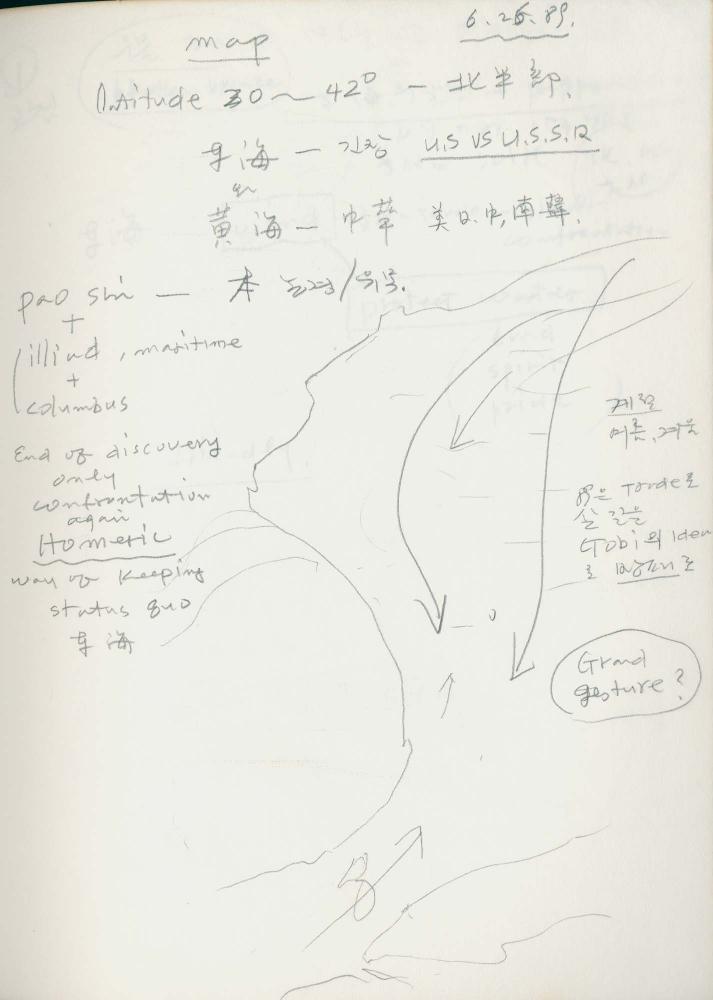 6.26.89.
map
Latitude 30~42° - 北半部.
东海 - 긴장 U.S VS U.S.S.R
黃海 - 中華 美日中,南韓.
pao shi - 本
+
illiad, maritime
+
columbus
End of discovery
only
confrontation
again
Homeric
way of keeping
status quo
东海
계절
여름, 겨울
로
Gobi의 Idea
로
Grand
gesture?